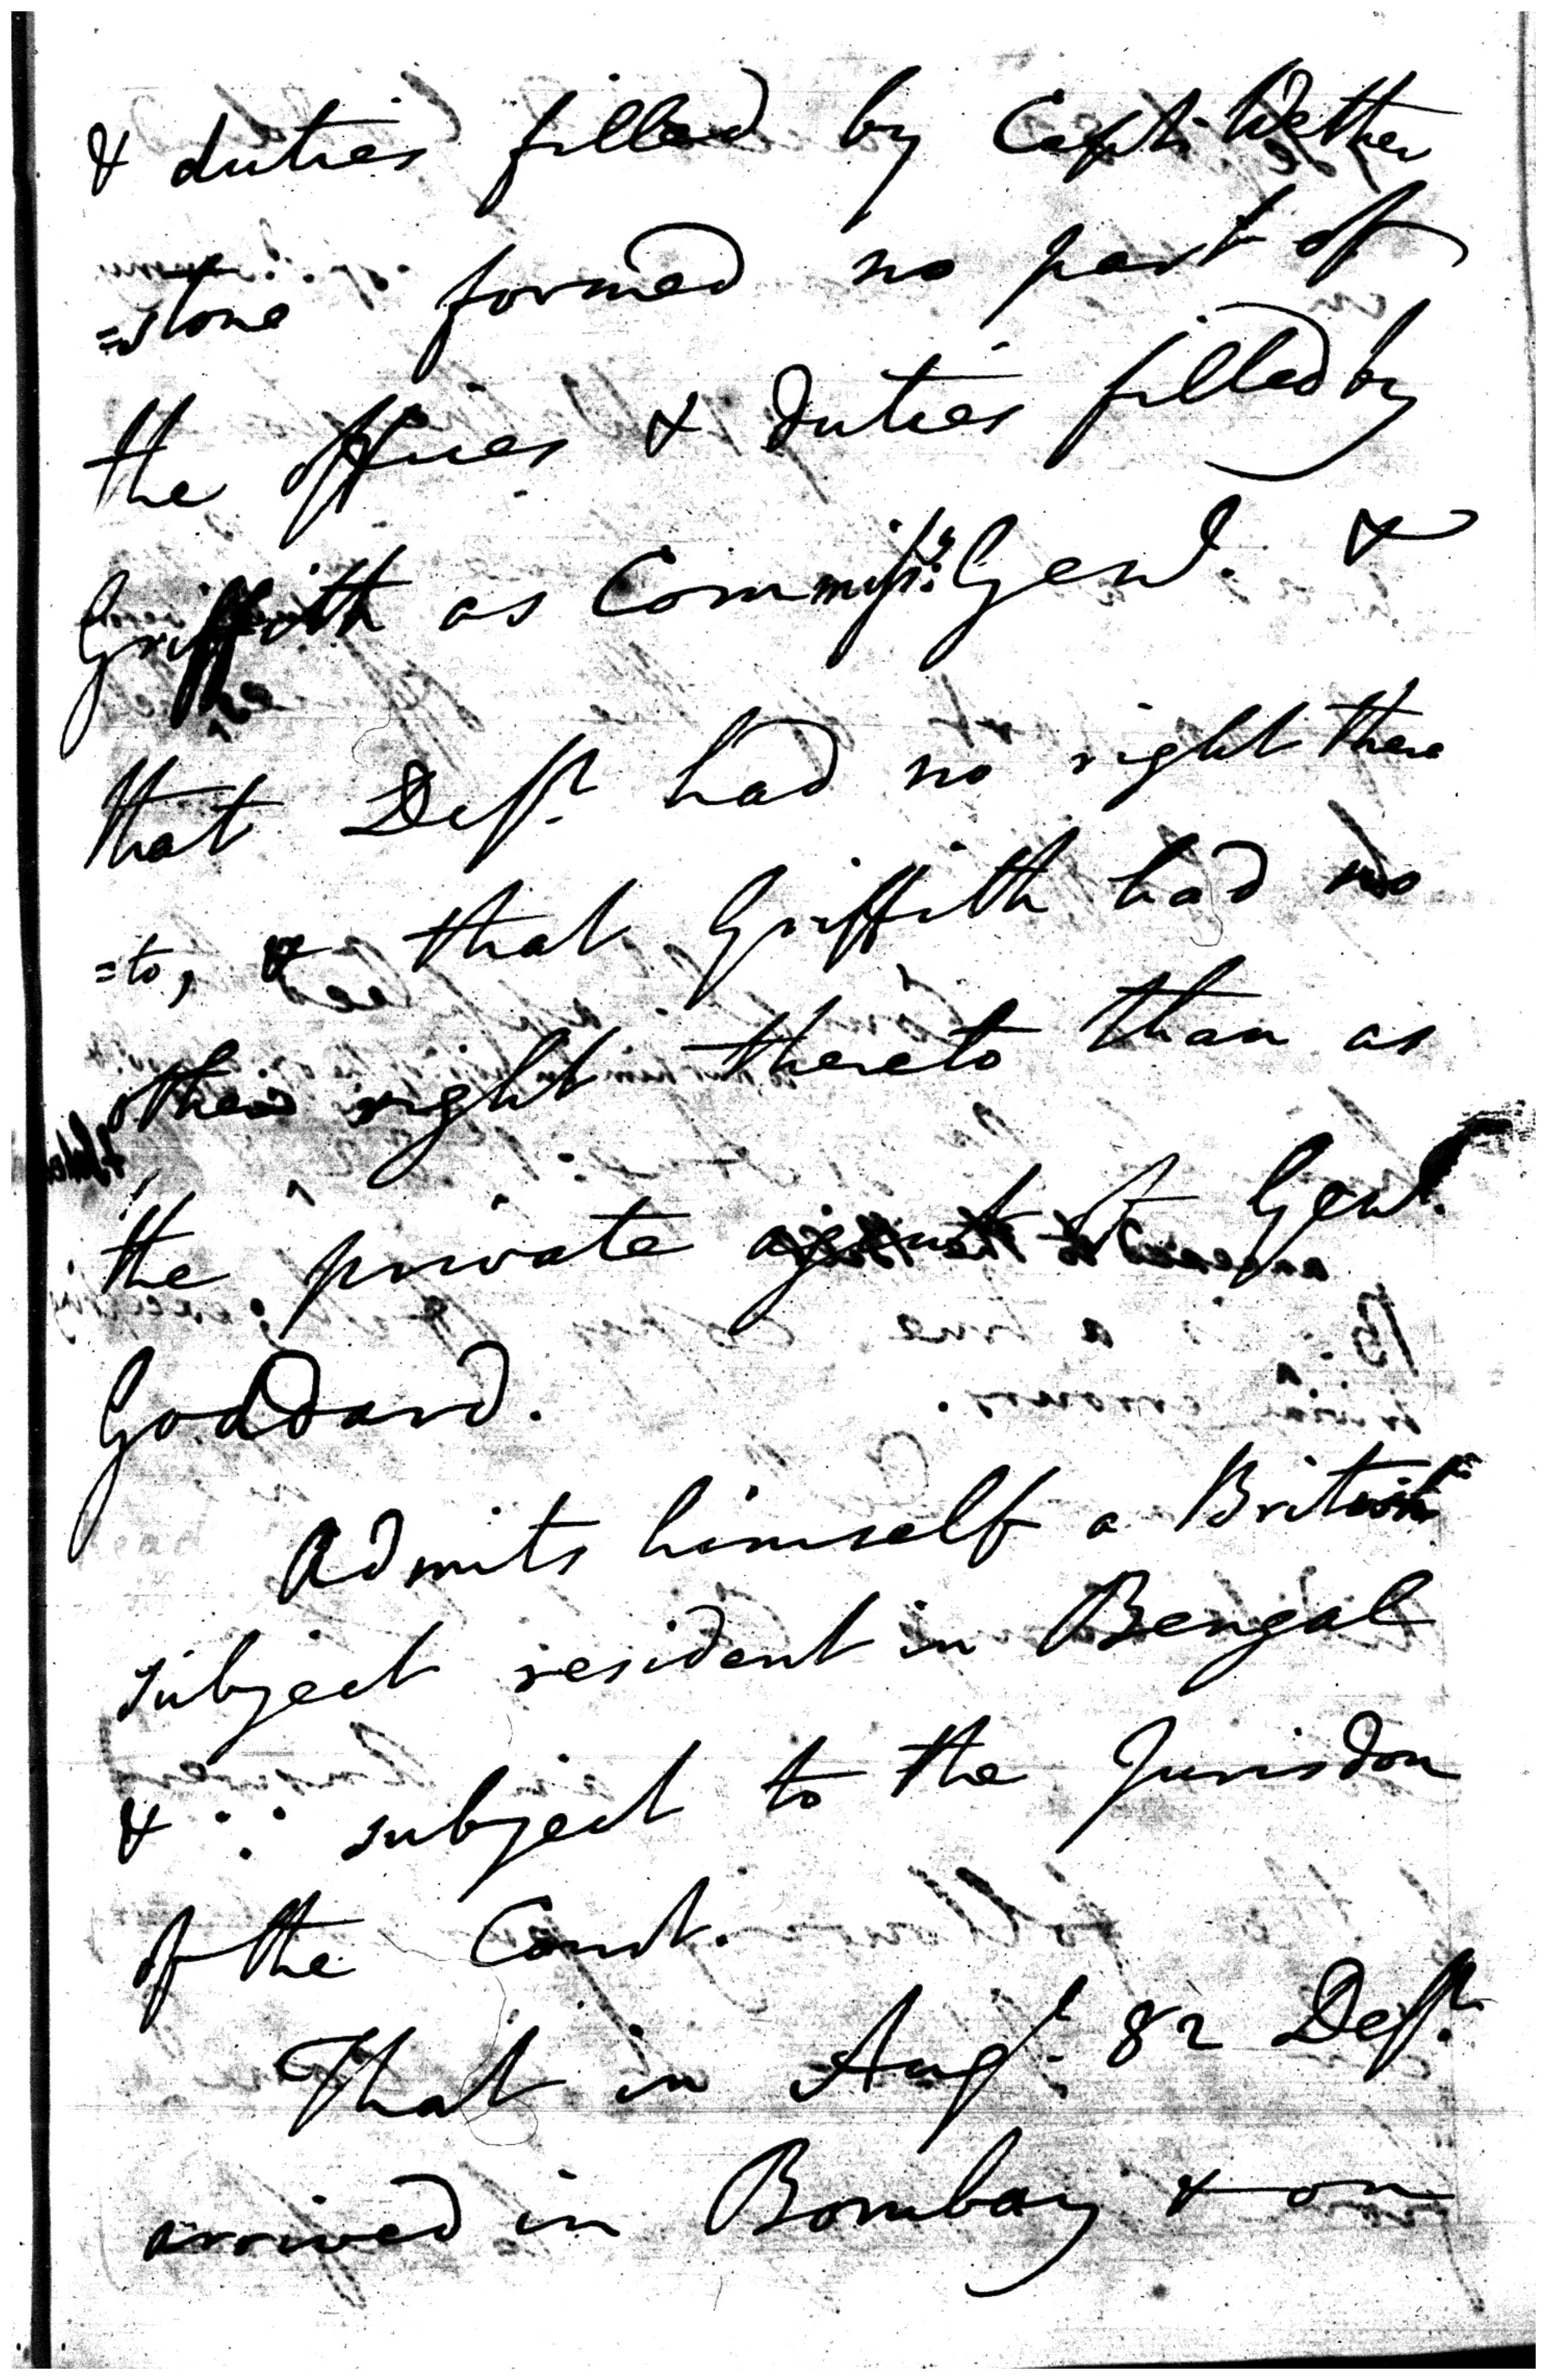 & duties filled by Capt. Wether
=stone formed no part of
the offices & duties filled by
Griffith as Commissy. Genl. &
that Deft. had no right there
=to, & that Griffith had no
other right thereto than as
the private agent of Genl.
Goddard.
Admits himself a British
subject resident in Bengal
& ∴ subject to the Jurisdon
of the Court.
That in Augt. 82 Deft.
arrived in Bombay & on